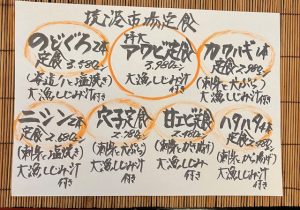 市場定食
のどぐろ2本
定食 3,580
(半道ハ塩焼き)
大漁しじみ汁
付き
特大
アワビ定食
3,980
大漁しじみ汁
付き
カワハギ1本
定食
(刺身と天ぷら)
大漁しじみ汁
付き
ニシン2本
定食 2,680
(刺身と塩焼き)
大漁しじみ汁
付き
穴子定食
2,980
(刺身と天ぷら)
大漁しじみ汁
付き
甘エビ定食
2,480
(刺身とかき揚げ)
大漁しじみ汁
付き
ハタハタ4本
定食 2,980
(刺身とから揚げ)
大漁しじみ汁
付き